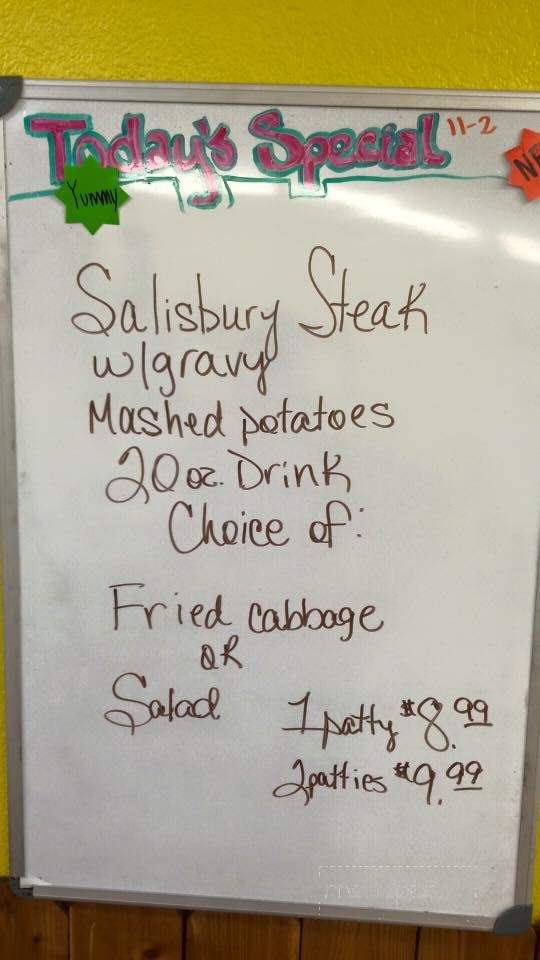 Today's Special 11-2
Yummy
Salisbury Steak
w/gravy
Mashed potatoes
20oz. Drink
Choice of:
Fried cabbage
OR
Salad
1 patty $8.99
2 patties $9.99